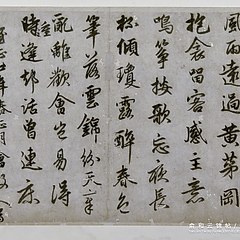 風雨遠過黃茅岡
抱衾留客感主意
鳴箏按歌忘夜長
傾瓊露醉春色
筆落雲錦紛天章
亂離歡會豈易得
時逢話曾連床
至正年春正月